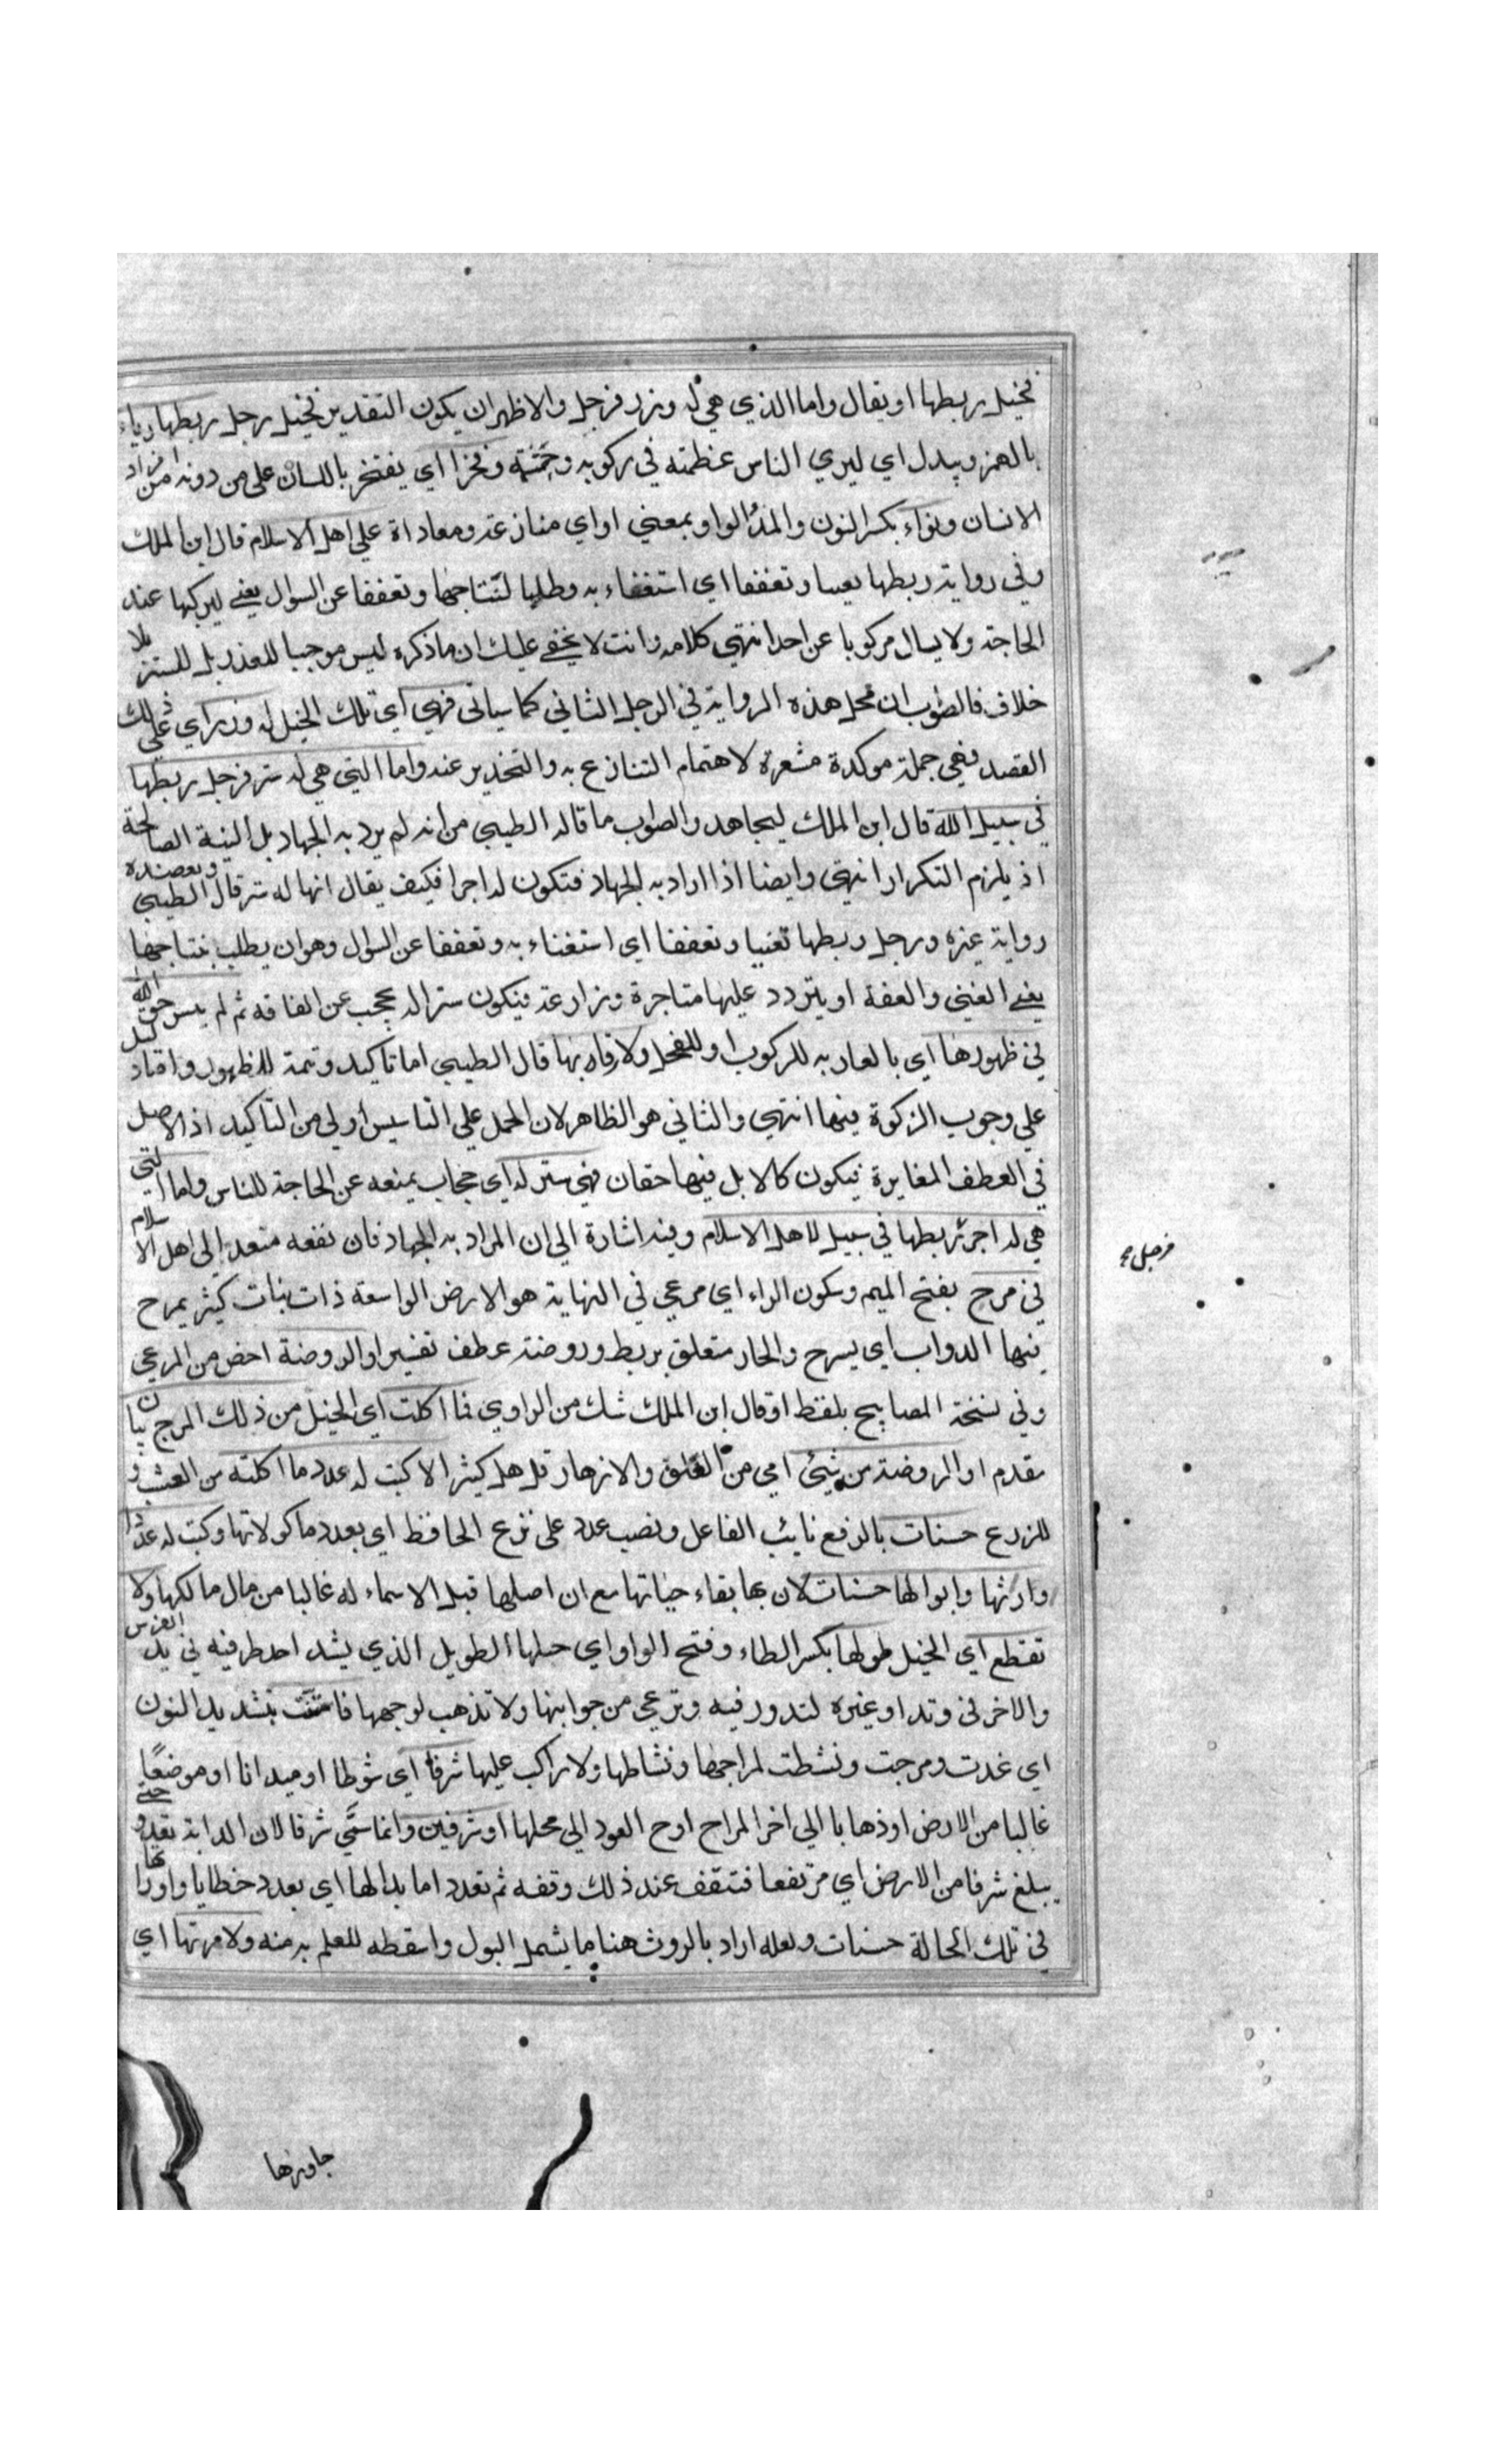 فخيل ربطها او يقال واما الذي هي له وزر فرجل والاظهر ان يكون التقدير فخيل رجل ربطها رياء
بالهمز ويبدل اي ليري الناس عظمته في ركوبه وحشمته وفخرا اي يفتخر باللسان على من دونه من افراد
الانسان ونواء بكسر النون والمد والواو بمعني او اي منازعة ومعاداة علي اهل الاسلام قال ابن الملك
وفي رواية ربطها تغنيا وتعففا اي استغناء به وطلبا لنتاجها وتعففا عن السوال يعني ليركبها عند
الحاجة ولا يسال مركوبا عن احد انتهي كلامه وانت لا يخفي عليك ان ما ذكره ليس موجبا للعذر بل للستر بلا
خلاف فالصواب ان محل هذه الرواية في الرجل الثاني كما سياتى فهي اي تلك الخيل له وزر اي على ذلك
القصد فهي جملة موكدة مشعرة لاهتمام التنازع به والتحذير عنه واما التي هي له ستر فرجل ربطها
في سبيل الله قال ابن الملك ليجاهد والصواب ما قاله الطيبي من انه لم يرد به الجهاد بل النية الصالحة
اذ يلزم التكرار انتهي وايضا اذا اراد به الجهاد فتكون له اجرا فكيف يقال انها له ستر قال الطيبي ويعضده
رواية غيره ورجل ربطها تغنيا وتعففا اي استغناء به وتعففا عن السوال وهو ان يطلب بنتاجها
يعني الغني والعفة او يتردد عليها متاجرة ومزارعة فيكون سترا له يحجب عن الفاقه ثم لم ينس حق الله
في ظهورها اي بالعارية للركوب او للفحل ولا رقابها قال الطيبي اما تاكيد وتتمة للظهور واما دليل
علي وجوب الزكوة فيها انتهي والثاني هو الظاهر لان الحمل علي التاسيس اولى من التاكيد اذ الاصل
في العطف المغايرة فيكون كالابل فيها حقان فهي ستر له اي حجاب يمنعه عن الحاجة للناس واما التي
هي له اجر فربطها في سبيل الله لاهل الاسلام وفيه اشارة الي ان المراد به الجهاد فان نفعه متعد إلى اهل الاسلام
في مرج بفتح الميم وسكون الراء اي مرعي في النهاية هو الارض الواسعة ذات نبات كثير يمرح
فيها الدواب اي يسرح والجار متعلق بربط وروضة عطف تفسير او الروضة اخص من المرعي
وفي نسخة المصابيح بلفظ او قال ابن الملك شك من الراوي فما اكلت اي الخيل من ذلك المرج بيان
مقدم او الروضة من شيئ اي من العلف والازهار قل هل كثير الا كتب له عدد ما اكلته من العشب و
الزرع حسنات بالرفع نائب الفاعل ونصب عدد على نزع الحافظ اي بعدد ماكولاتها وكتب له عدد
وارثها وابوالها حسنات لان بها بقاء حياتها مع ان اصلها قبل الاسماء له غالبا من مال مالكها ولا
تقطع اي الخيل طولها بكسر الطاء وفتح الواو اي حبلها الطويل الذي يشد احد طرفيه في يد الفرس
والاخر في وتد او غيره لتدور فيه وترعي من جوانبها ولا تذهب لوجهها فاستنت بتشديد النون
اي غدت ومرجت ونشطت لمراحها ونشاطها ولا راكب عليها شرفا اي شوطا او ميدانا او موضعًا
غالبا من الارض او ذهابا الي اخر المراح اوح العود الي محلها او شرفين وانما سمّي شرفا لان الدابة تعدو حتي
يبلغ شرفا من الارض اي مرتفعا فتقف عند ذلك وقفه ثم تعدد اما بدالها اي بعدد خطايا واوراثها
في تلك الحالة حسنات ولعله اراد بالروث هنا ما يشمل البول واسقطه للعلم به منه ولا مرتها اي
فرجل صح
جاوزها